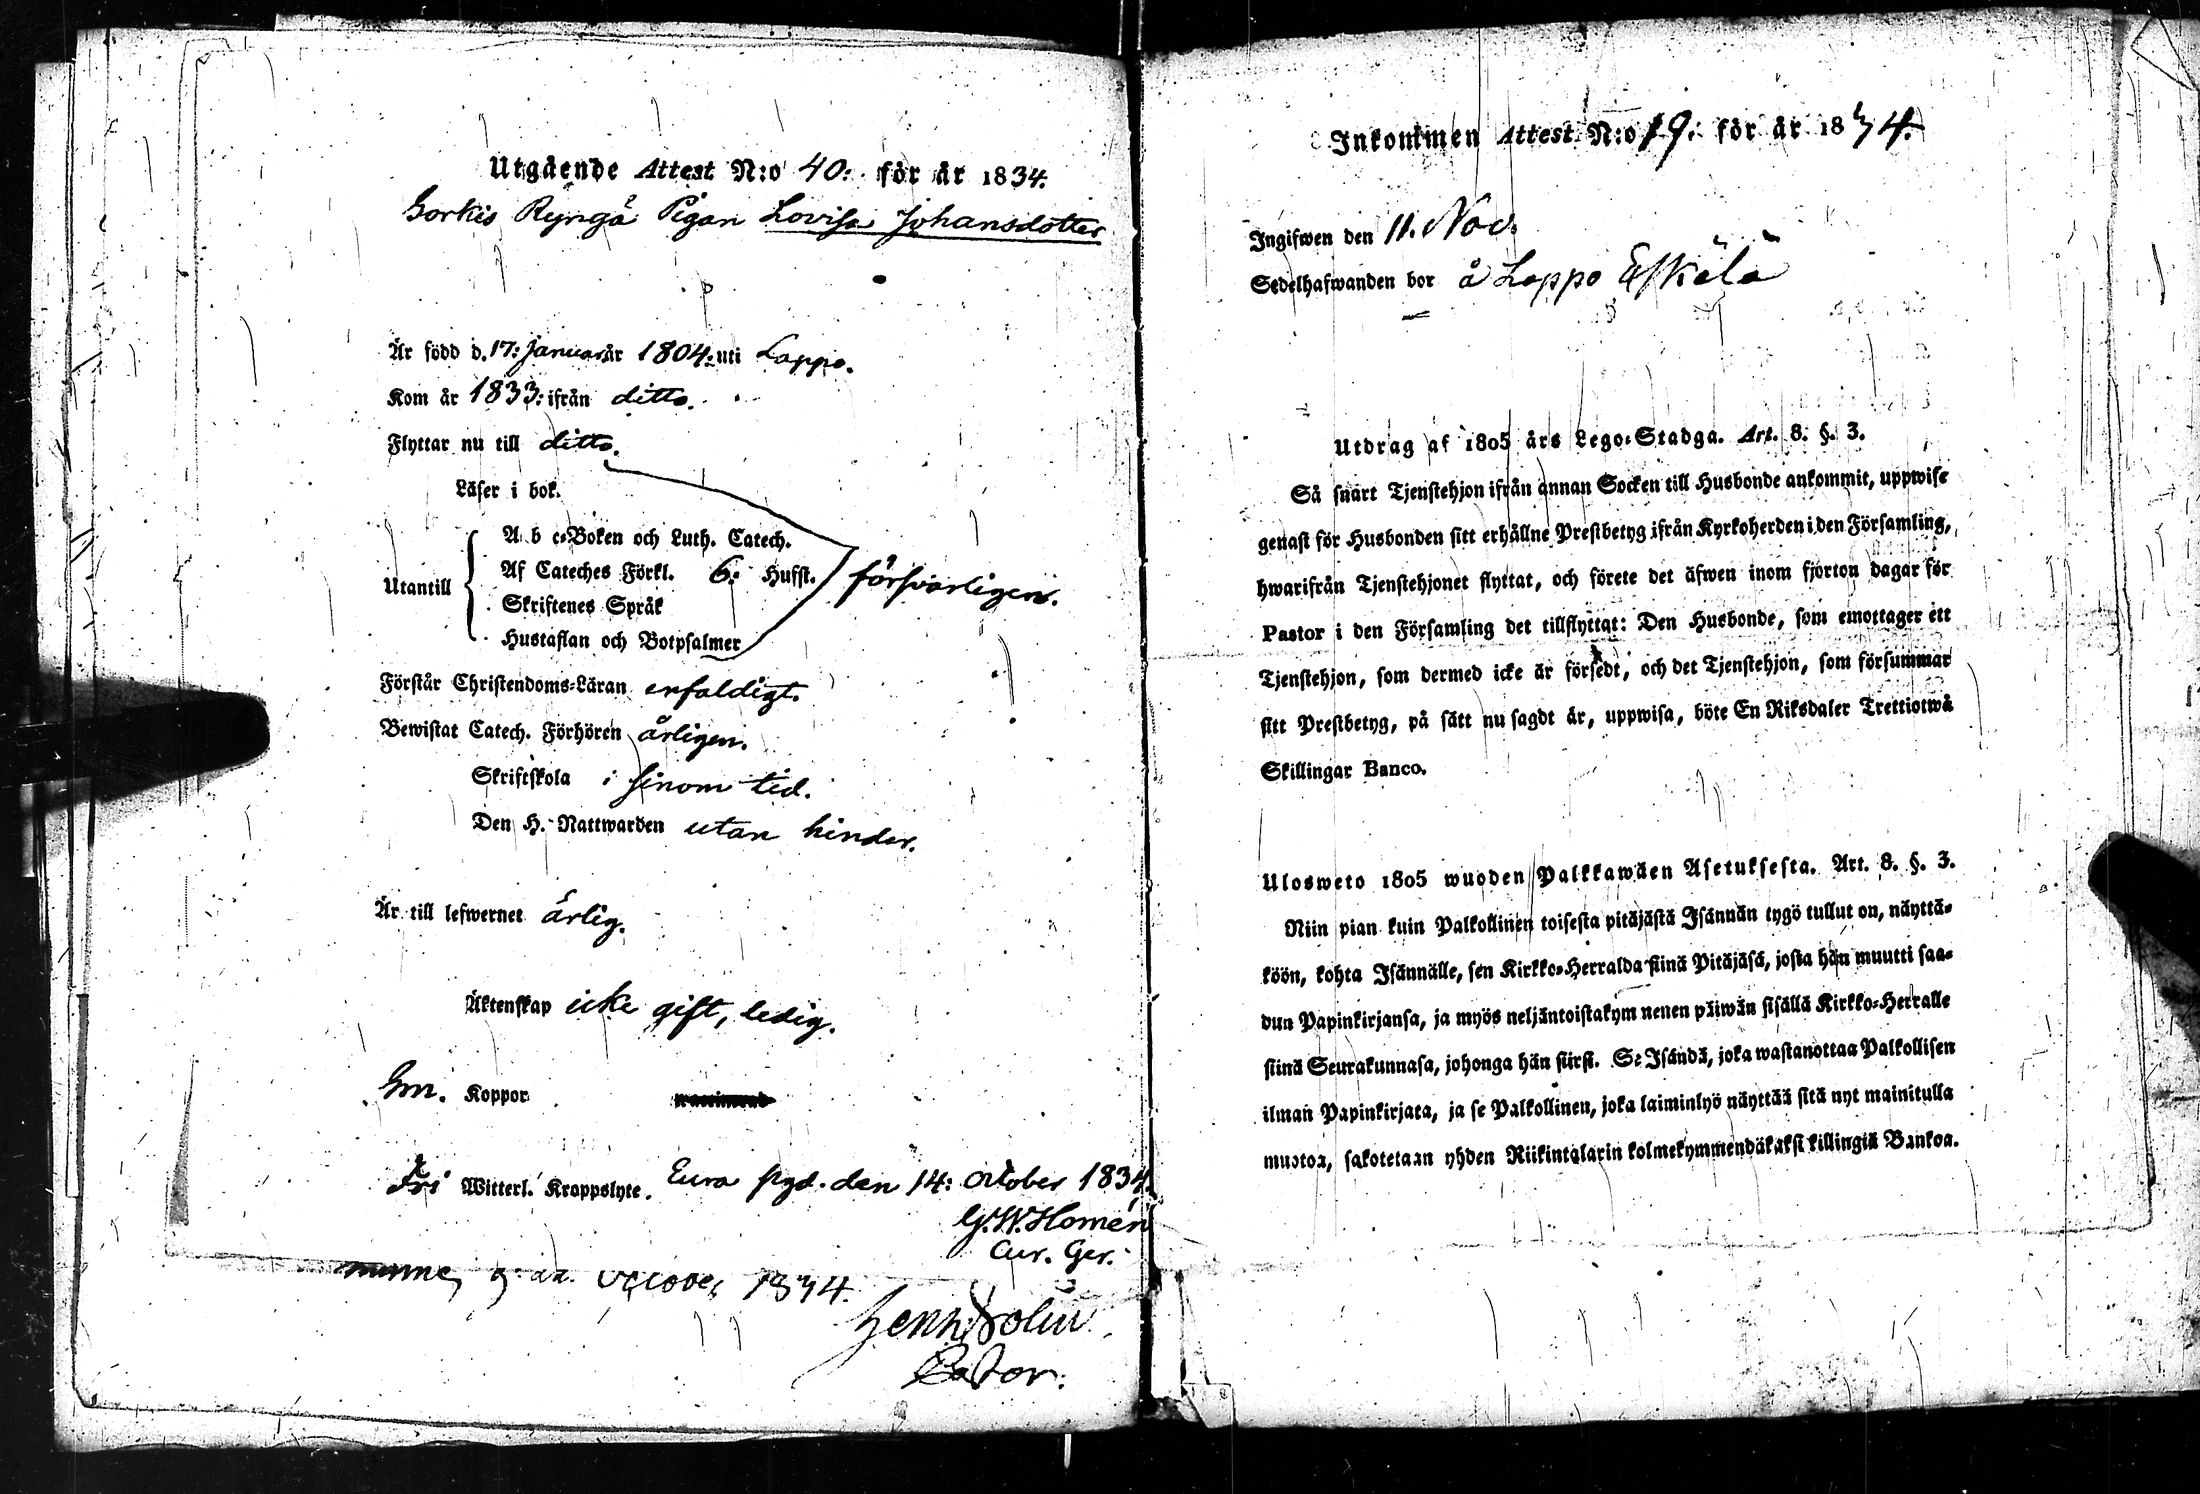 Utgående Attest N:o 40: för år 1834.
Sorkis Ryngä Pigan Lovisa Johansdotter
Är född d. 17: Januari år 1804: uti Lappo.
Kom år 1833: ifrån ditto.
Flyttar nu till ditto.
Läser i bok.
A b c-Boken och Luth. Catech.
Utantill Af Cateches Förkl. 6: Hufst. försvarligen.
Skriftenes Språk
Hustaflan och Botpsalmer
Förstår Christendoms-Läran enfaldigt.
Bewistat Catech. Förhören årligen.
Skriftskola i sinom tid.
Den H. Nattwarden utan hinder.
Är till lefwernet ärlig.
Äktenskap icke gift, ledig.
Koppor
Fri Witterl. Krappslyte. Eura pgd. den 14: October 1834.
G. W. Homén
Cur. Ger.
October 1834.
Pastor.
Inkommen Attest N:o 19. för år 1834.
Ingifwen den 11. Nov.
Sedelhafwanden bor å Lappo Eskälä
Utdrag af 1805 års Lego-Stadga. Art. 8. §. 3.
Så snart Tjenstehjon ifrån annan Socken till Husbonde ankommit, uppwise
genast för Husbonden sitt erhållne Prestbetyg ifrån Kyrkoherden i den Församling,
hwarifrån Tjenstehjonet flyttat, och förete det äfwen inom fjorton dagar för
Pastor i den Församling det tillflyttat: Den Husbonde, som emottager ett
Tjenstehjon, som dermed icke är försedt, och det Tjenstehjon, som försummar
sitt Prestbetyg, på sätt nu sagdt är, uppwisa, böte En Riksdaler Trettiotwå
Skillingar Banco.
Ulosweto 1805 wuoden Palkkawäen Asetuksesta. Art. 8. §. 3.
Niin pian kuin Palkollinen toisesta pitäjästä Isännän tygö tullut on, näyttä-
köön, kohta Isännälle, sen Kirkko-Herralda siinä Pitäjäsä, josta hän muutti saa-
dun Papinkirjansa, ja myös neljäntoistakym nenen päiwän sisällä Kirkko-Herralle
siinä Seurakunnasa, johonga hän siirsi. Se Isändä, joka wastanottaa Palkollisen
ilman Papinkirjata, ja se Palkollinen, joka laiminlyö näyttää sitä nyt mainitulla
muotoa, sakotetaan yhden Riikintalarin kolmekymmendäkaksi killingiä Bankoa.